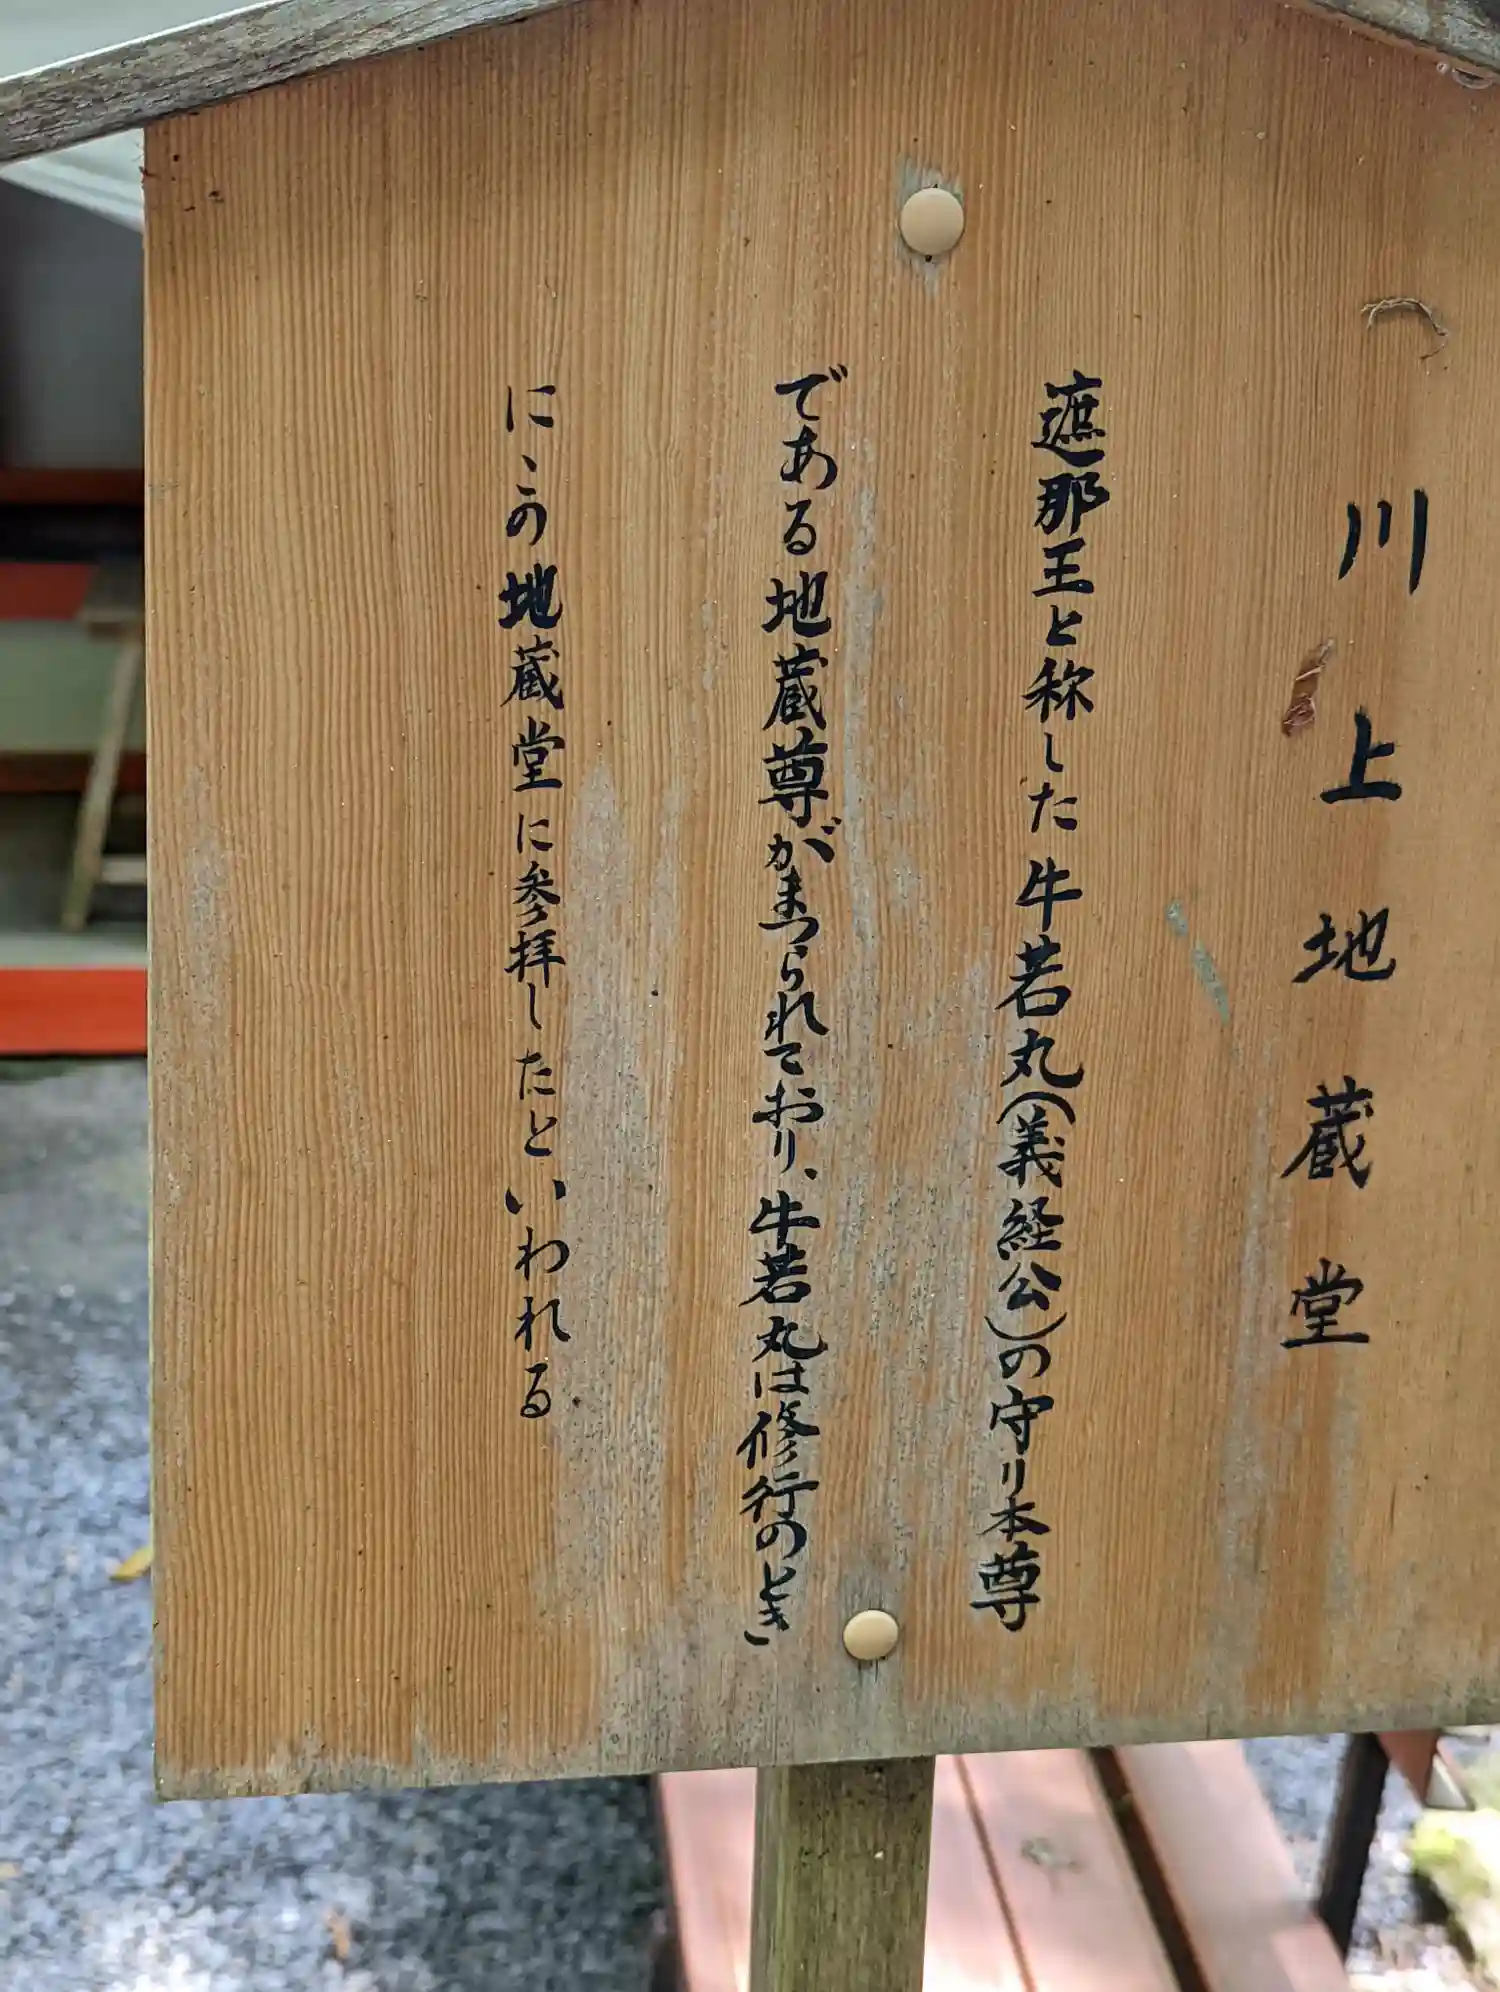 川上地蔵堂
遮那王と称した牛若丸(義経公)の守り本尊
である地蔵尊がまつられており、牛若丸は修行のとき
に、この地蔵堂に参拝したといわれる